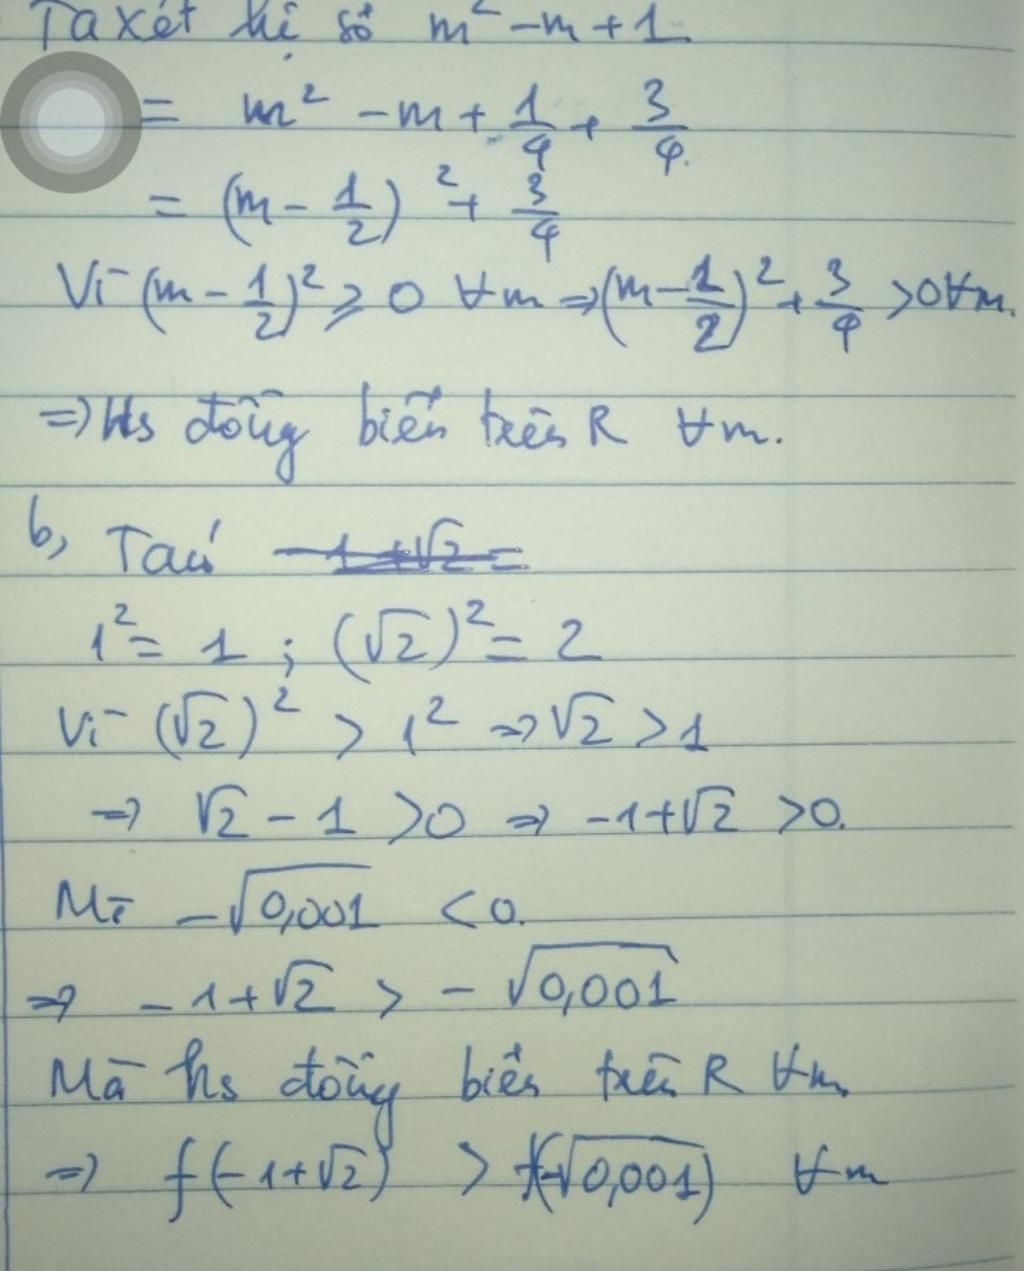 Ta xét hệ số m² - m + 1
= m² - m + 1/4 + 3/4.
= (m - 1/2)² + 3/4
Vì (m - 1/2)² ⩾ 0 ∀m ⇒ (m - 1/2)² + 3/4 > 0 ∀m.
⇒ Hs đồng biến trên R ∀m.
b, Ta có -1+√2 =
1² = 1 ; (√2)² = 2
Vì (√2)² > 1² ⇒ √2 > 1
⇒ √2 - 1 > 0 ⇒ -1+√2 > 0.
Mà -√0,001 < 0.
⇒ -1+√2 > -√0,001
Mà hs đồng biến trên R ∀m
⇒ f(-1+√2) > f(-√0,001) ∀m